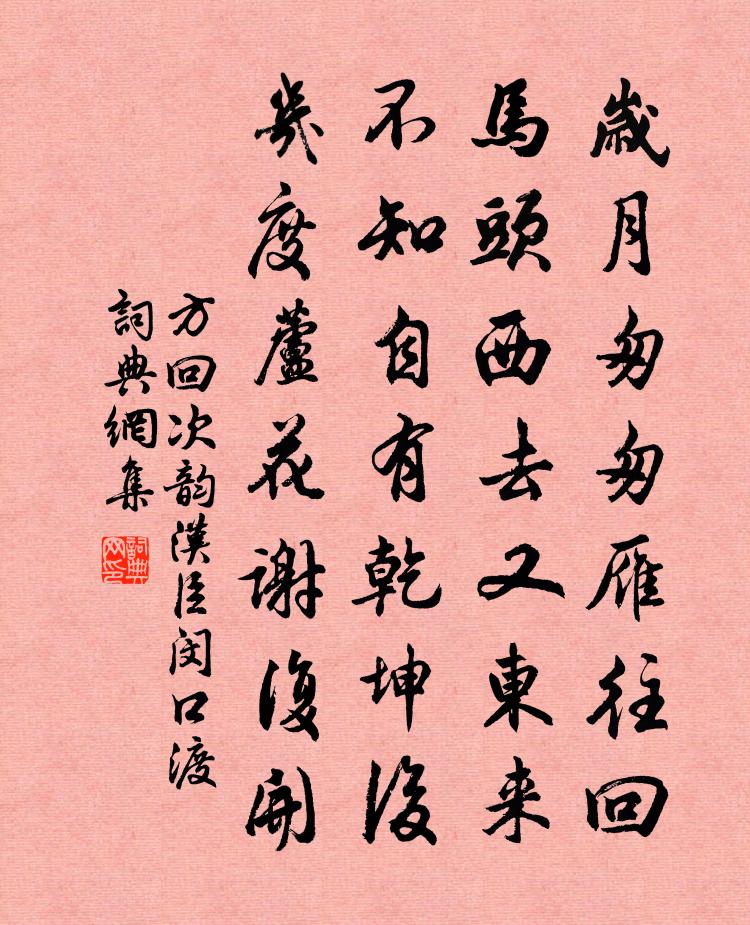 歲月匆匆雁往回
馬頭西去又東来
不知自有乾坤後
幾度蘆花謝復開
方回次韵漢臣閔口渡
詞典網集
詞典网印